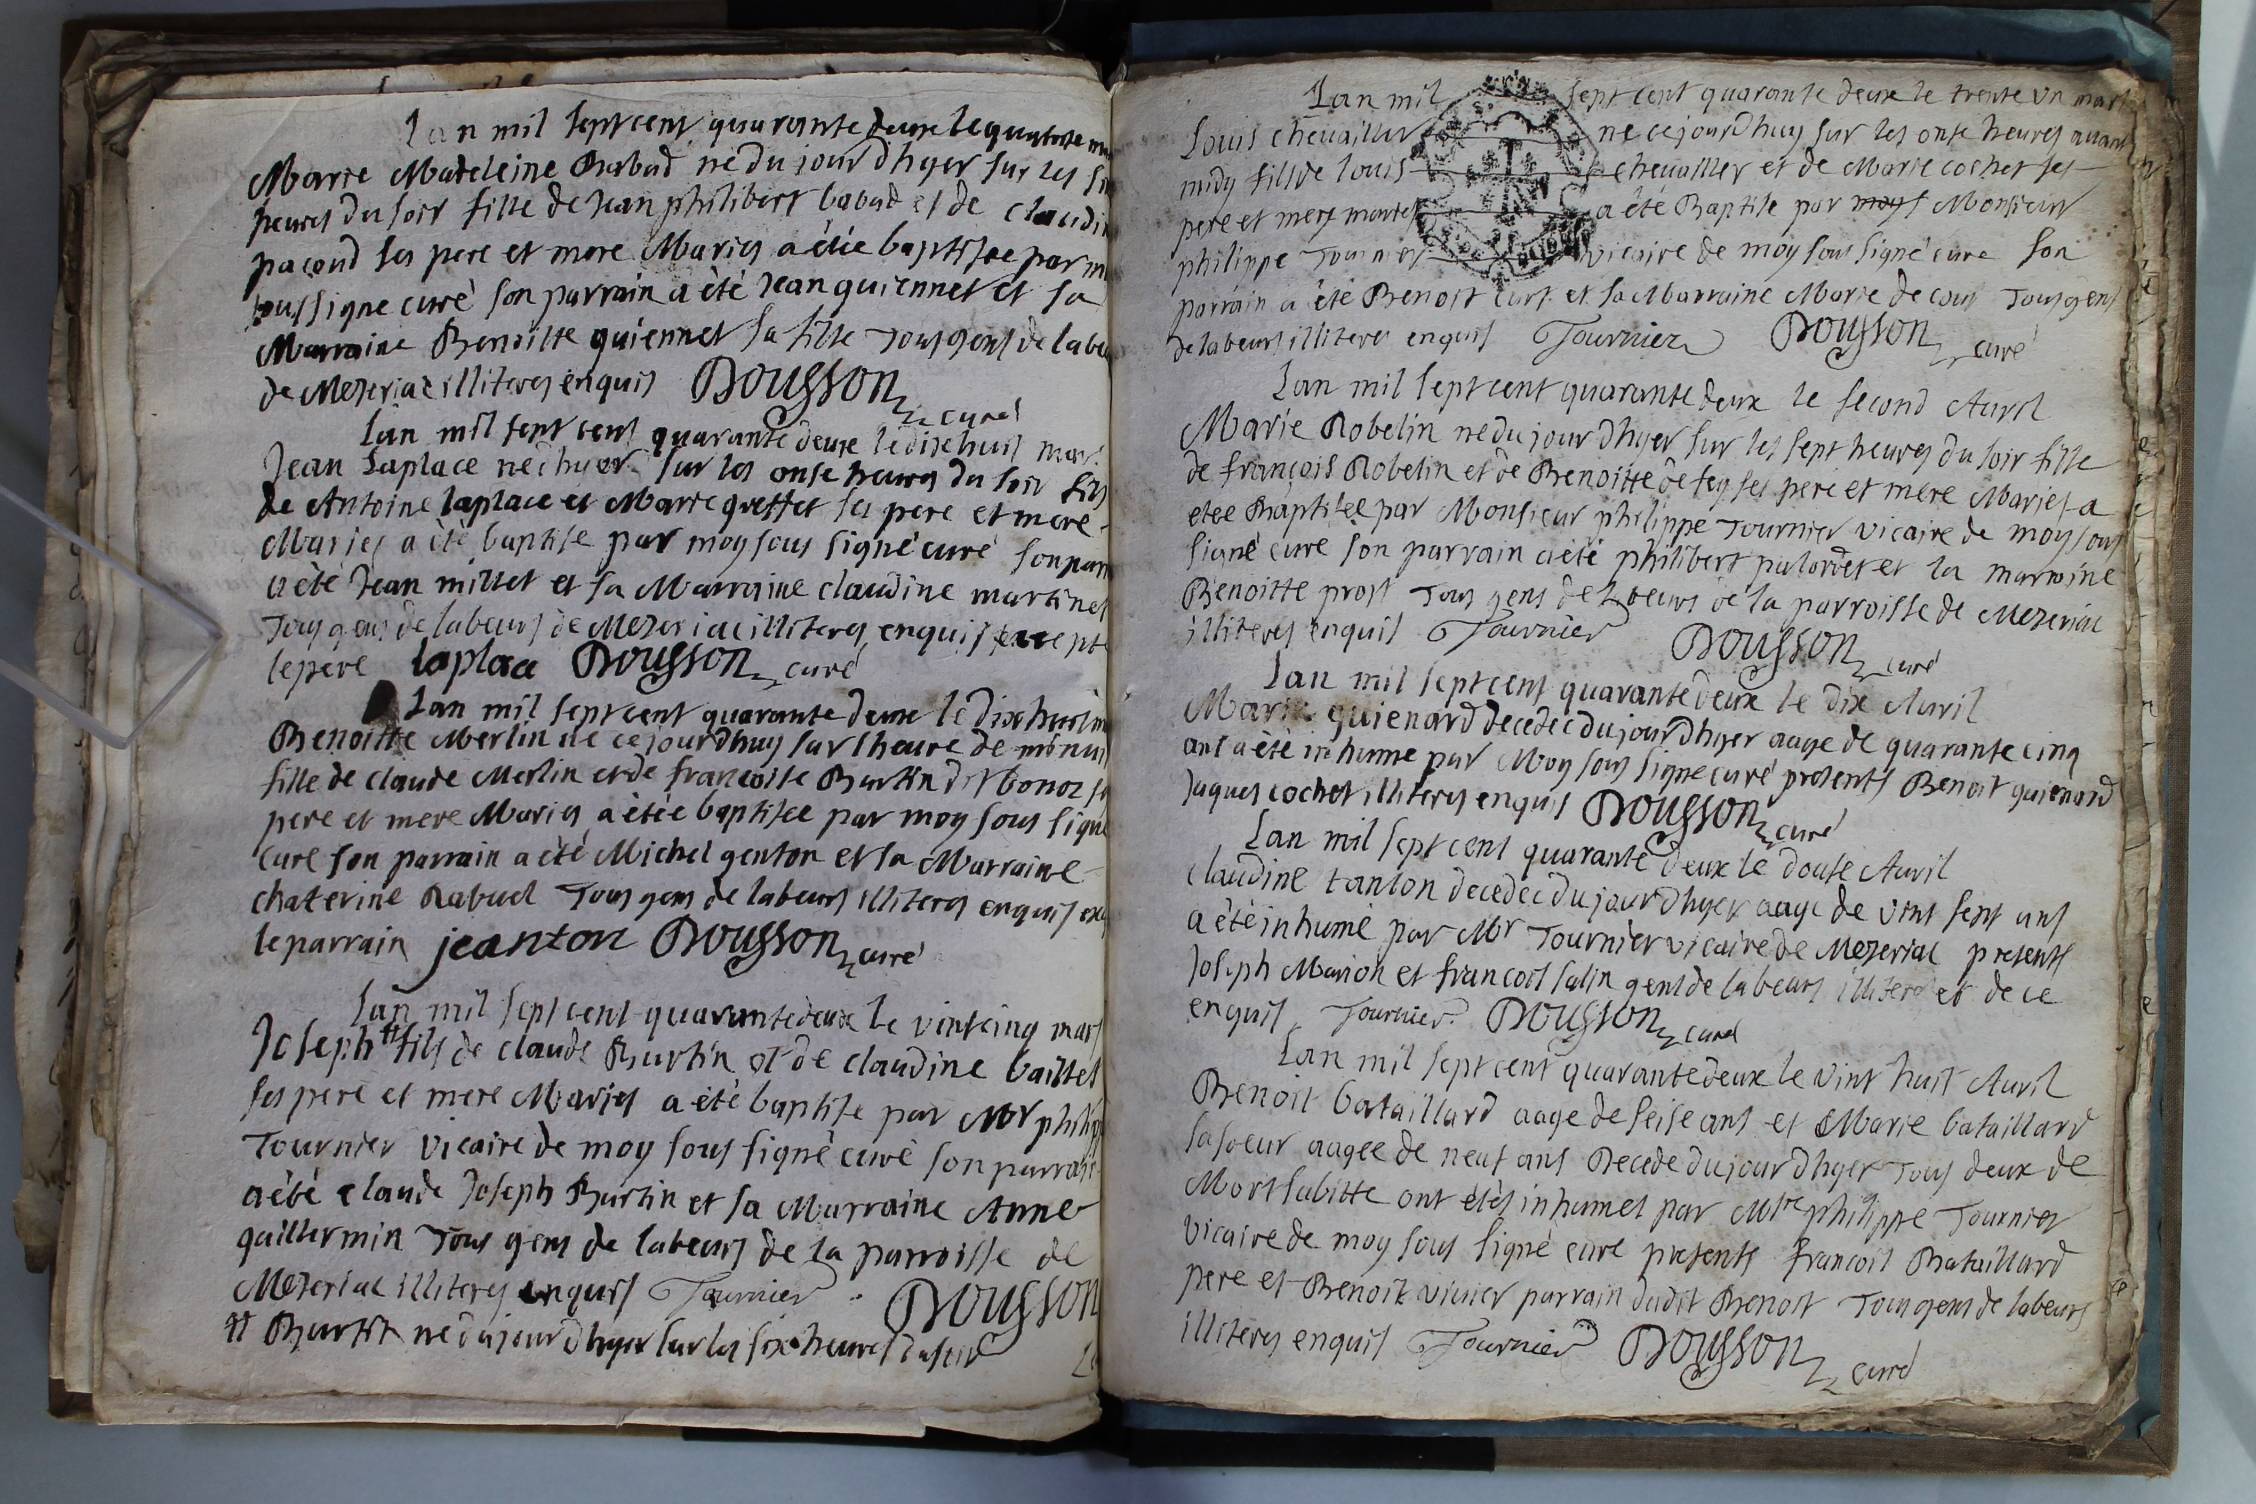 Lan mil sept cent quarante deux le quatorse
Marie Madeleine Barbad ne du jour dhyer sur les
heures du soir fille de Jean philibert babad et de claudin
pacoud ses pere et mere Maries a étée baptisee par
soussigne curé son parrain a été Jean quiennet et sa
Marraine Benoitte quiennet sa fille Tous gens de labeu
de Mezeriac illiteres enquis Dousson curé
Lan mil sept cent quarante deux le dixhuit mar
Jean Laplace ne dhyer sur les onse heures du soir fils
de Antoine laplace et Marie greffet ses pere et mere
Maries a été baptise par moy sous signé curé son parr
a été Jean millet et sa Marraine claudine martinet
Tous gens de labeurs de Mezeriac illiteres enquis excepte
le pere laplace Dousson curé
Lan mil sept cent quarante deux le dixhuit
Benoitte Merlin ne ce jourdhuy sur lheure de minuit
fille de claude Merlin et de francoise Burtin dit bonoz
pere et mere Maries a étée baptisee par moy sous signé
curé son parrain a été Michel genton et sa Marraine
chaterine Rabuel Tous gens de labeurs illiteres enquis exc
le parrain jeanton Dousson curé
Lan mil sept cent quarante deux le vintcinq mars
Joseph # fils de claude Burtin et de claudine baillet
ses pere et mere Maries a été baptise par Mr philip
Tournier vicaire de moy sous signé curé son parrain
a été claude Joseph Burtin et sa Marraine Anne
guillermin Tous gens de labeurs de la parroisse de
Mezeriac illiteres enquis Tournier Dousson
# Burtin ne du jour dhyer sur les six heures du soir
Lan mil sept cent quarante deux le trente un mars
Louis chevaillier ne ce jourdhuy sur les onse heures avant
midy fils de louis chevaillier et de Marie cochet ses
pere et mere maries a été Baptise par moy s Monsieur
philippe Tournier vicaire de moy sous signé cure son
parrain a été Benoit curt et sa Marraine Marie de cour Tous gens
de labeurs illiteres enquis Tournier Dousson curé
Lan mil sept cent quarante deux le second Avril
Marie Robelin ne du jour dhyer sur les sept heures du soir fille
de françois Robelin et de Benoitte de fey ses pere et mere Maries a
etee Baptisée par Monsieur philippe Tournier vicaire de moy sous
signé cure son parrain a été philibert palordet et la marraine
Benoitte prost Tous gens de labeurs de la parroisse de Mezeriac
illiteres enquis Tournier Dousson curé
Lan mil sept cent quarante deux le dix Avril
Marie quienard decedée du jour dhyer aage de quarante cinq
ans a été inhume par Moy sous signe curé presents Benoit quienard
Jaques cochet illiteres enquis Dousson curé
Lan mil sept cent quarante deux le douse Avril
claudine tanton decedée du jour dhyer aage de vint sept ans
a été inhumé par Mr Tournier vicaire de Mezeriac presents
Joseph Marion et francois salin gens de labeurs illiteres et de ce
enquis Tournier Dousson curé
Lan mil sept cent quarante deux le vint huit Avril
Benoit bataillard aage de seise ans et Marie bataillard
sa soeur aagee de neuf ans Decede du jour dhyer Tous deux de
Mort subitte ont étés inhumes par Mtre philippe Tournier
vicaire de moy sous signé cure presents francois Bataillard
pere et Benoit vivier parrain dudit Benoit Tous gens de labeurs
illiteres enquis Tournier Dousson curé